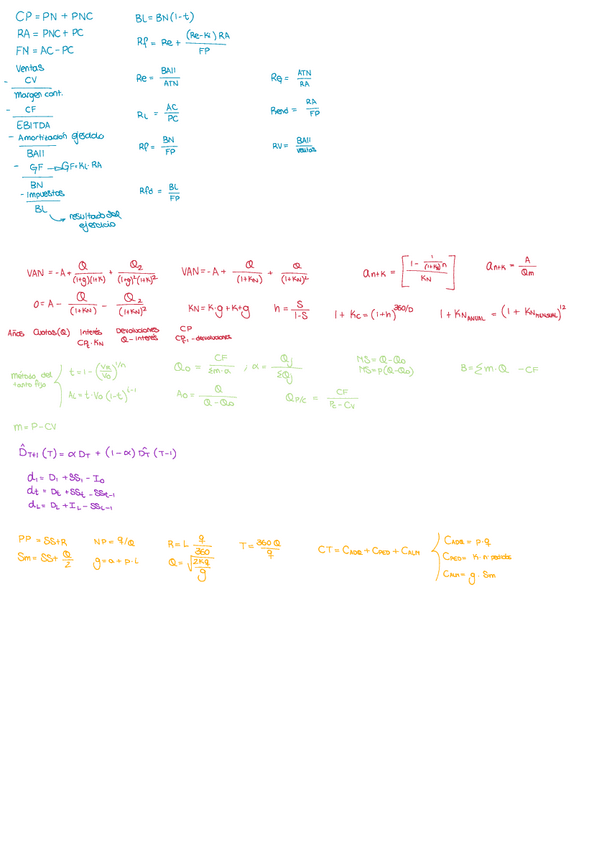 CP = PN + PNC
BL = BN(1-t)
RA = PNC + PC
Rf = Re + (Re-Ki)RA / FP
FN = AC - PC
Ventas
- CV
Margen cont.
- CF
EBITDA
- Amortización ejercicio
BAII
- GF → GF=Ki·RA
BN
- Impuestos
BL → resultado del ejercicio
Re = BAII / ATN
RL = AC / PC
Rf = BN / FP
Rfd = BL / FP
Rq = ATN / RA
Rend = RA / FP
RV = BAII / Ventas
VAN = -A + Q / (1+g)(1+K) + Q2 / (1+g)²(1+K)²
VAN = -A + Q / (1+KN) + Q / (1+KN)²
an¬K = [ 1 - 1 / (1+KN)^n / KN ]
an¬K = A / Qm
0 = A - Q / (1+KN) - Q2 / (1+KN)²
KN = K·g+K+g
h = S / 1-S
1 + Kc = (1+h)^360/D
1 + KN ANUAL = (1 + KN MENSUAL)^12
Años Cuotas(Q) Interés Devoluciones CP
CP·KN Q - interés - devoluciones
Método del tanto fijo
t = 1 - (VR / V0)^1/n
Ai = t·V0 (1-t)^i-1
Q0 = CF / Σm·α ; α = Qj / ΣQj
A0 = Q / Q-Q0
MS = Q-Q0
MS = p(Q-Q0)
QP/C = CF / Pc - CV
B = Σm·Q - CF
m = P-CV
D̂T+1 (T) = α DT + (1-α) D̂T (T-1)
d1 = D1 + SS1 - I0
dt = Dt + SSt - SSt-1
dL = DL + IL - SSL-1
PP = SS+R
NP = q/Q
R = L q / 360
T = 360Q / q
CT = CADQ + CPED + CALM
CADQ = p·q
CPED = K·n pedidos
CALM = g·Sm
Sm = SS + Q / 2
g = α + p·i
Q = √2Kq / g